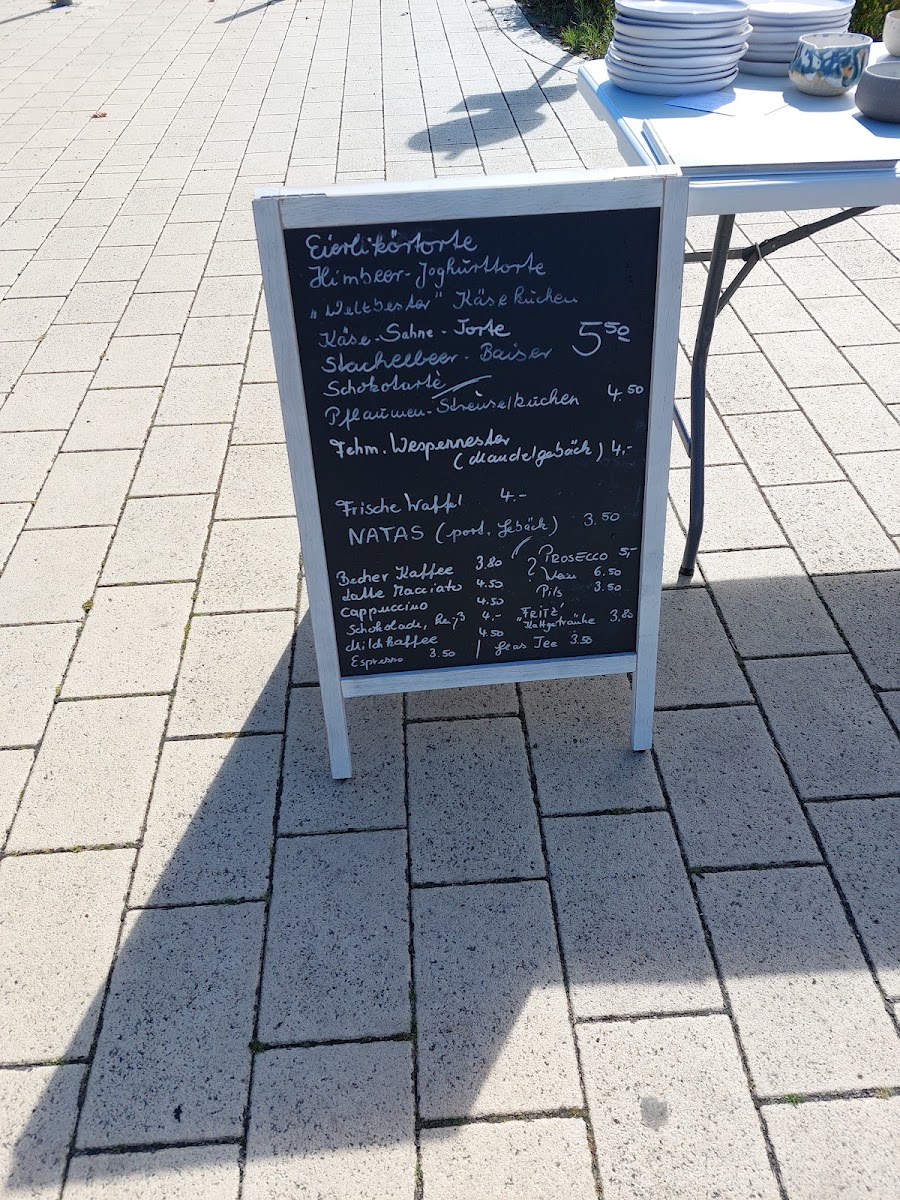 Eierlikörtorte
Himbeer-Joghurttorte
„Weltbester" Käsekuchen
Käse-Sahne-Torte 5⁵⁰
Stachelbeer-Baiser
Schokotarte
Pflaumen-Streuselkuchen 4.50
Fehm. Wespennester
(Mandelgebäck) 4,-
Frische Waffel 4.-
NATAS (port. Gebäck) 3.50
Becher Kaffee 3.80
Latte Macciato 4.50
Cappuccino 4.50
Schokolade, 4.-
Milchkaffee 4.50
Espresso 3.50
PROSECCO 5,-
Wein 6.50
Pils 3.50
"FRITZ"
Kaltgetränke 3,80
Glas Tee 3.50